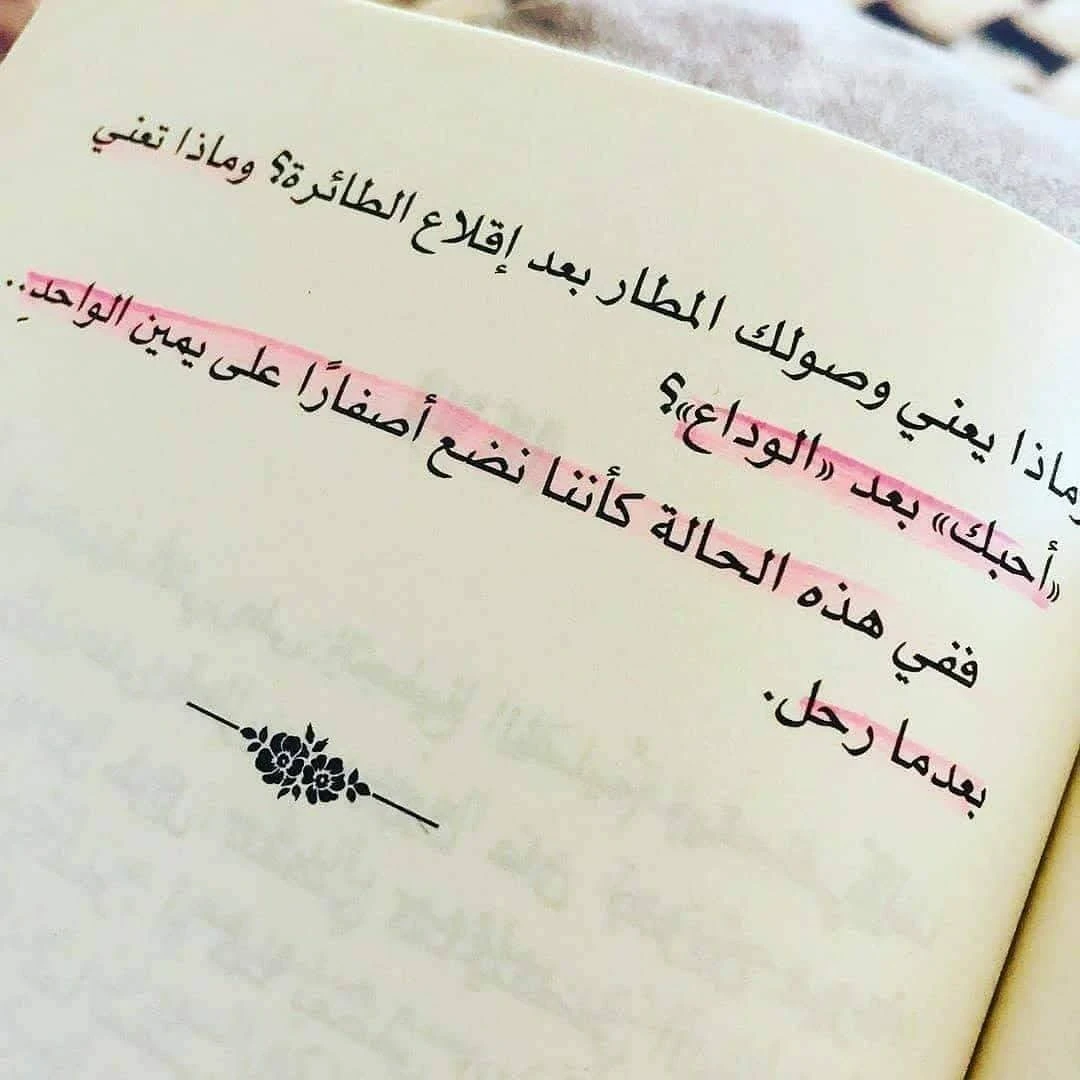 وماذا يعني وصولك المطار بعد إقلاع الطائرة؟ وماذا تعني
«أحبك» بعد «الوداع»؟
ففي هذه الحالة كأننا نضع أصفارًا على يمين الواحدِ..
بعدما رحل.